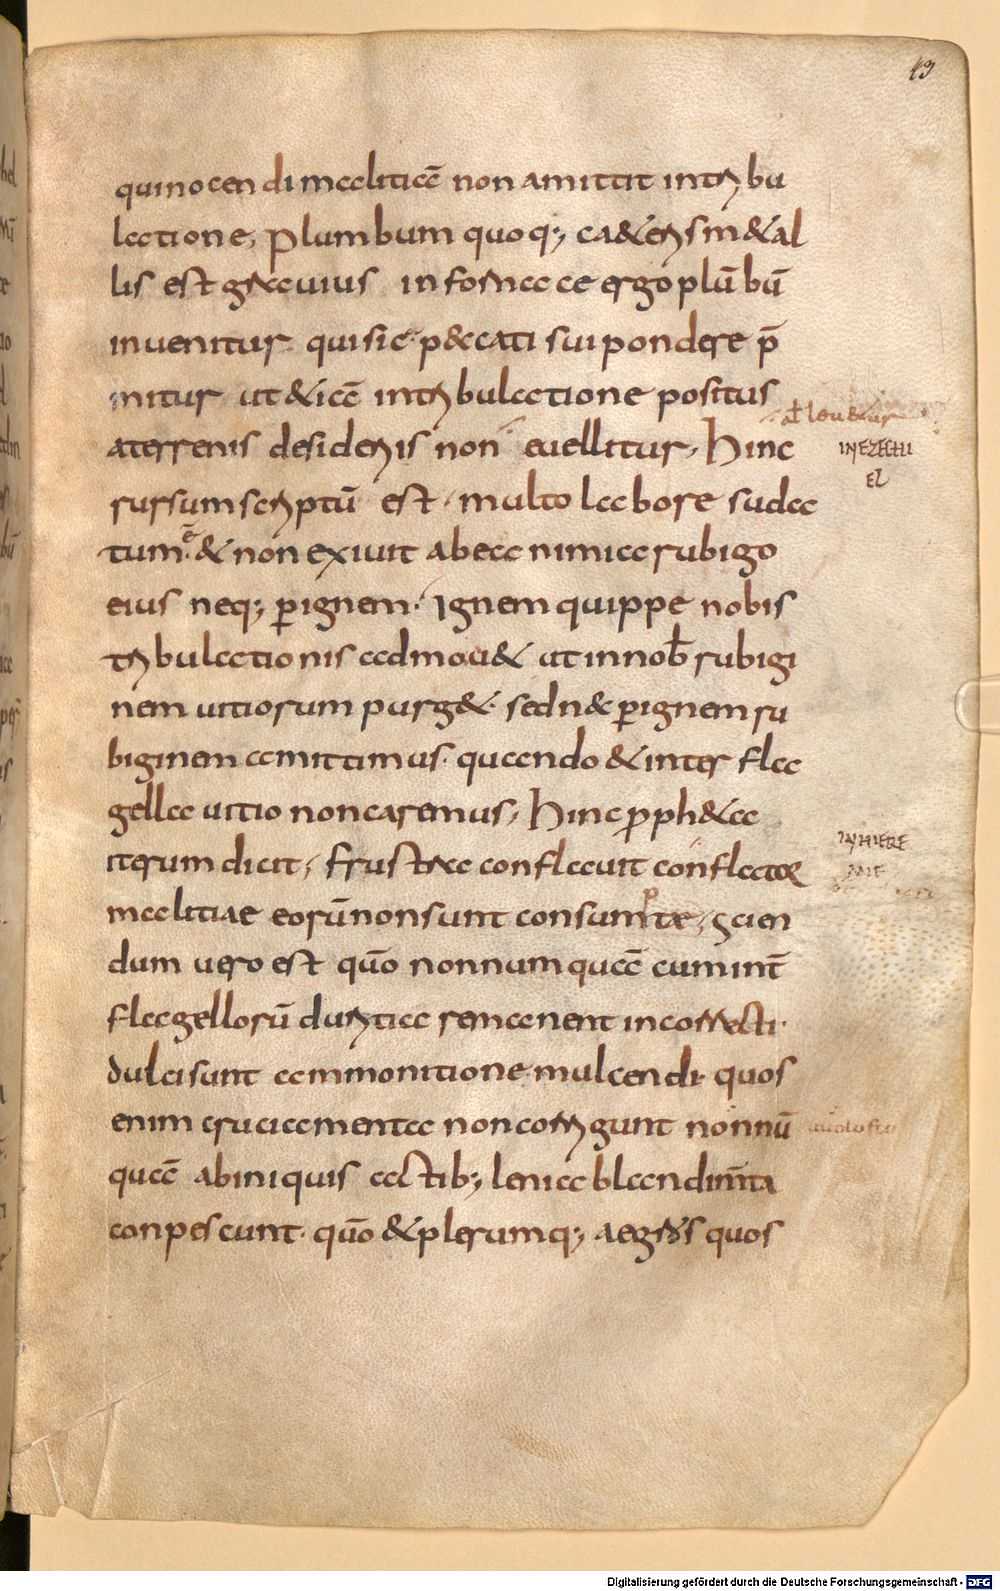 43
qui nocendi malitiā non amittit in tribu
latione, Plumbum quoq; ca&eris m&al
lis est gravius in fornace ergo plūbū
invenitur qui sic p&cati sui pondere p̄
mitur ut & iā in tribulatione positus
a terrenis desideriis non evellitur, Hinc
al leu&ur
IN EZECHI
EL
rursum scriptū est, multo labore suda
tum ē & non exivit ab ea nimia rubigo
eius neq; ꝑ ignem. Ignem quippe nobis
tribulationis admov& ut in nob̄ rubigi
nem vitiorum purg&. sed n& ꝑ ignem ru
biginem amittimus. quando & inter fla
gella vitio non caremus, Hinc ꝓph&a
IN HIERE
MIE
iterum dicit, frustra conflavit conflator
malitiae eorū non sunt consumptae, Scien
dum vero est quō nonnumquā cum int̄
flagellorū duritia remanent incorrecti.
dulci sunt ammonitione mulcendi quos
enim cruciamenta non corrigunt nonnū
quā ab iniquis actib; lenia blandim̄ta
conpescunt. quō & plerumq; aegros quos
Digitalisierung gefördert durch die Deutsche Forschungsgemeinschaft - DFG